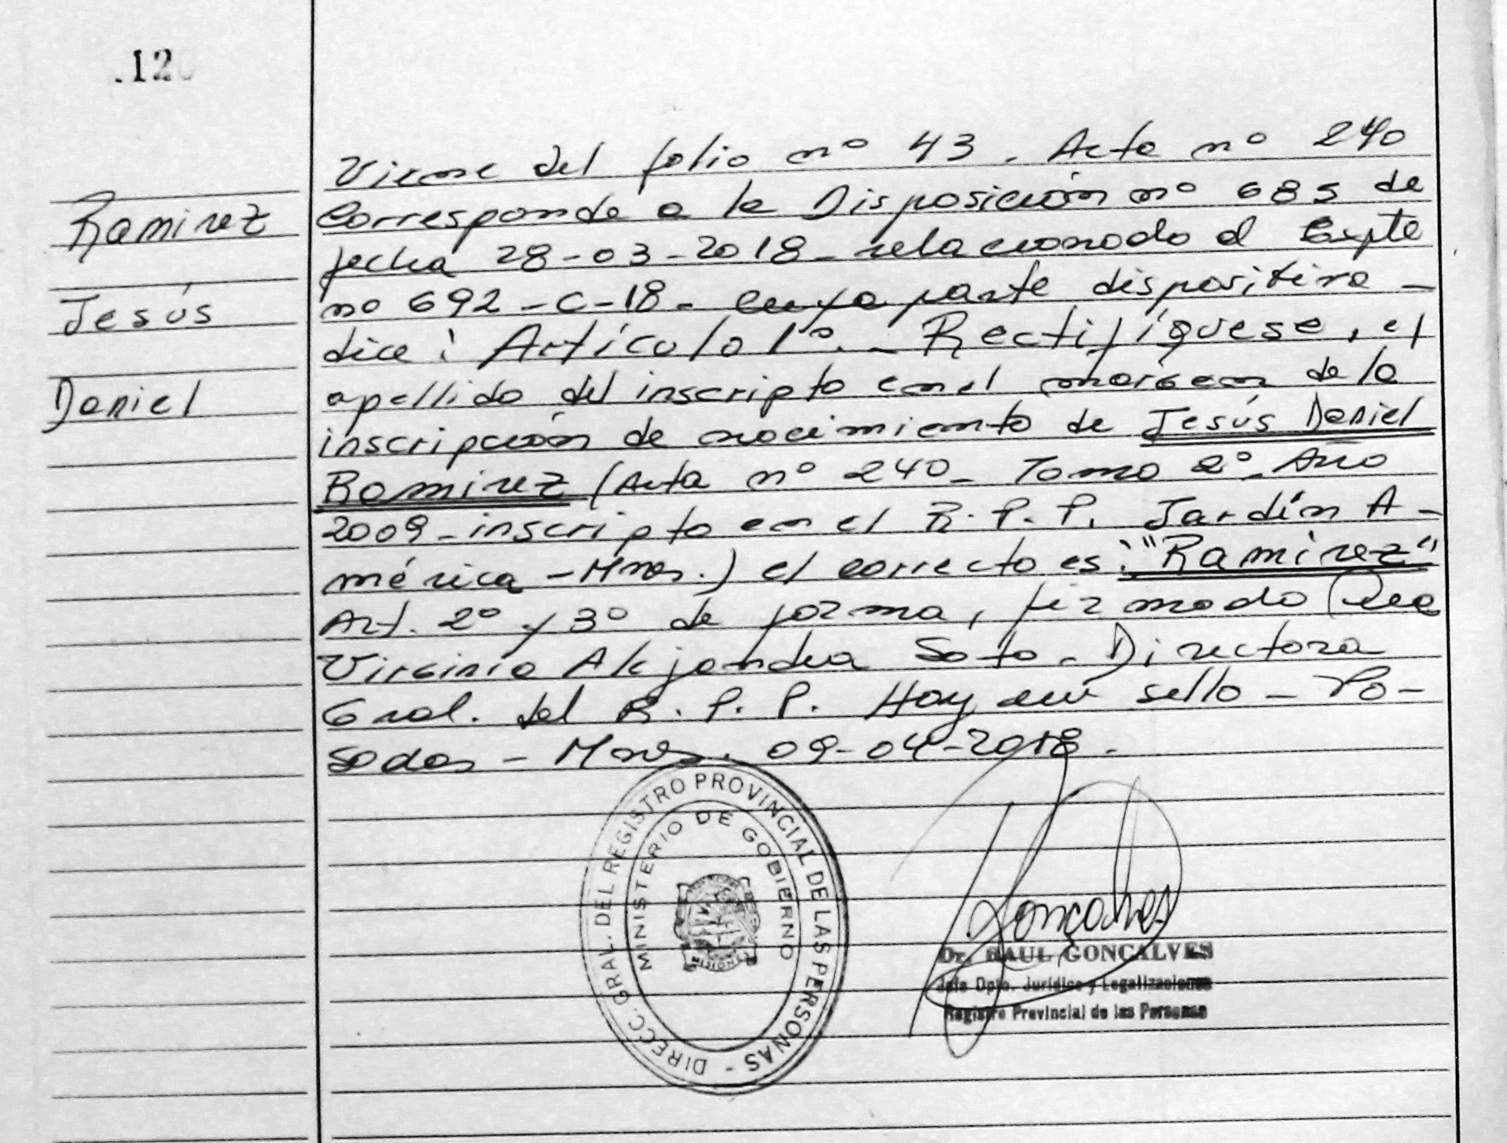 .120
Ramirez
Jesús
Daniel
Viene del folio nº 43. Acta nº 240
Corresponde a la Disposición nº 685 de
fecha 28-03-2018 - relacionado al Expte
nº 692-C-18 - cuya parte dispositiva -
dice: Artículo 1º. - Rectifíquese, el
apellido del inscripto en el margen de la
inscripción de nacimiento de Jesús Daniel
Ramirez (Acta nº 240 - Tomo 2º - Año
2009 - inscripto en el R.P.P. Jardín A-
mérica - Mnes.) el correcto es: "Ramirez"
Art. 2º y 3º de forma, firmado Dra
Virginia Alejandra Soto - Directora
Gral. del R.P.P. Hay un sello - Po-
sadas - Mnes. 09-04-2018.
DIRECC. GRAL. DEL REGISTRO PROVINCIAL DE LAS PERSONAS -
MINISTERIO DE GOBIERNO
MISIONES
Goncalves
Dr. RAUL GONCALVES
Jefe Dpto. Jurídico y Legalizaciones
Registro Provincial de las Personas